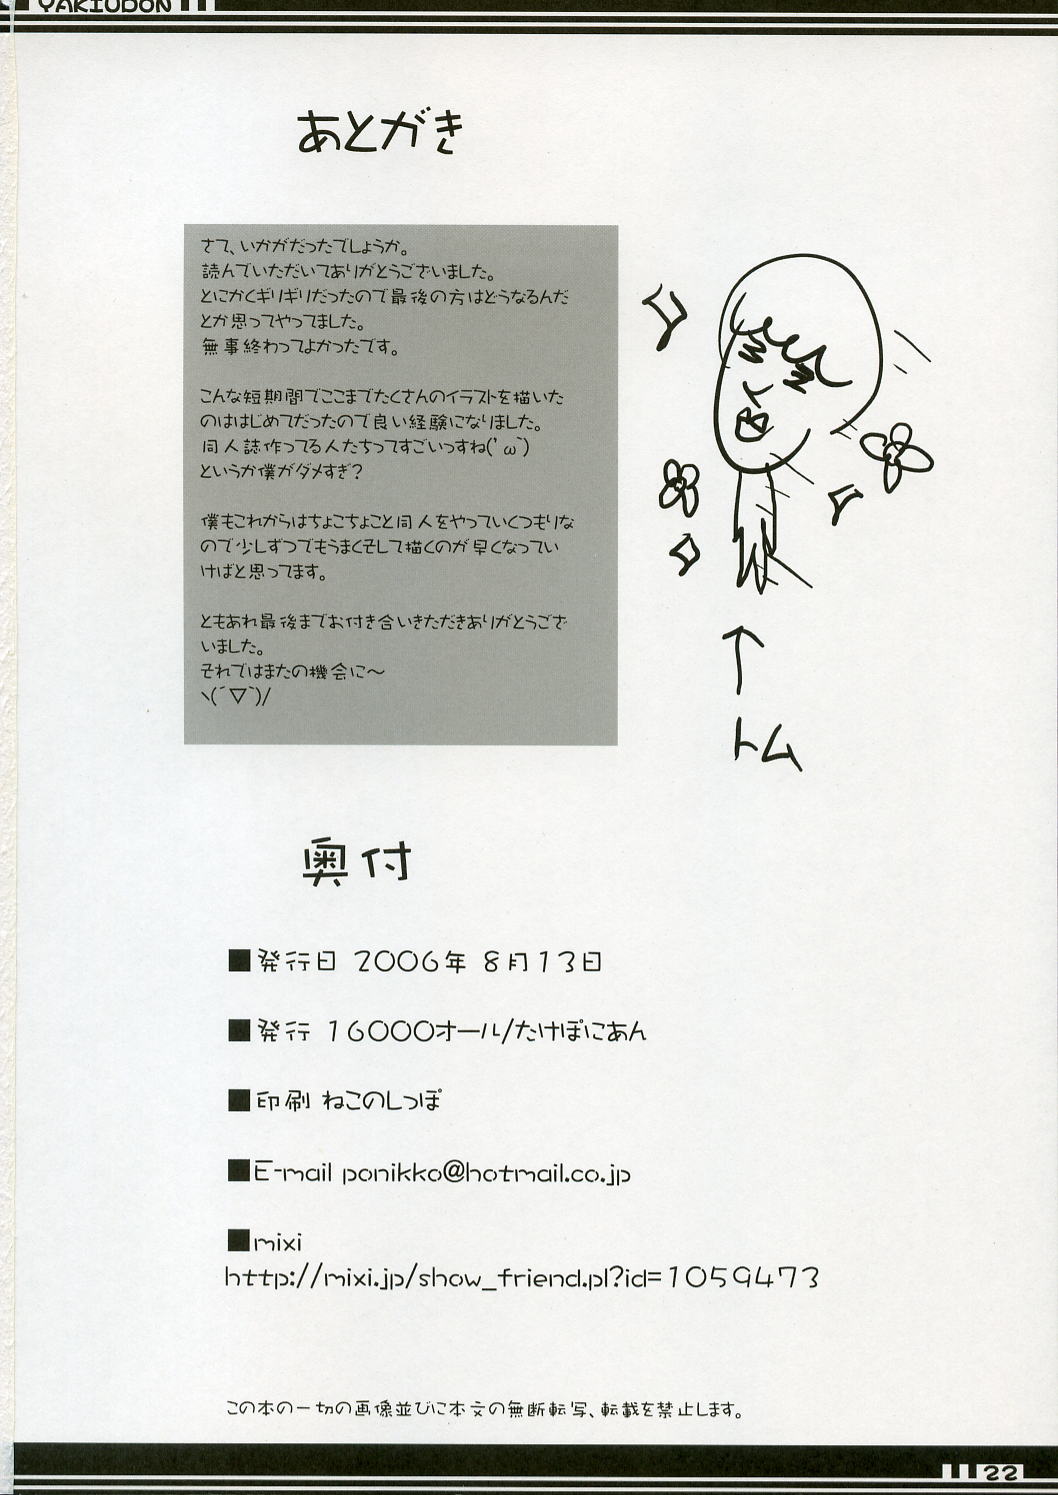 YAKIUDON
あとがき
さて、いかがだったでしょうか。
読んでいただいてありがとうございました。
とにかくギリギリだったので最後の方はどうなるんだ
とか思ってやってました。
無事終わってよかったです。
こんな短期間でここまでたくさんのイラストを描いた
のははじめてだったので良い経験になりました。
同人誌作ってる人たちってすごいっすね(’ω`)
というか僕がダメすぎ？
僕もこれからはちょこちょこと同人をやっていくつもりな
ので少しずつでもうまくそして描くのが早くなってい
けばと思ってます。
ともあれ最後までお付き合いきただきありがとうござ
いました。
それではまたの機会に～
ヽ(´▽`)/
↑
トム
奥付
■発行日 2006年 8月13日
■発行 16000オール/たけぽにあん
■印刷 ねこのしっぽ
■E-mail ponikko@hotmail.co.jp
■mixi
http://mixi.jp/show_friend.pl?id=1059473
この本の一切の画像並びに本文の無断転写、転載を禁止します。
22